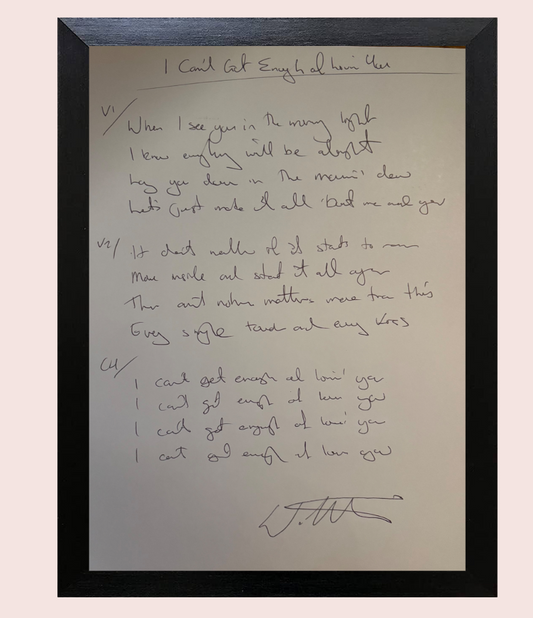 I Can't Get Enough of Lovin' You
V1/
When I see you in the morning light
I know everything will be alright
Lay you down in the mornin' dew
Let's just make it all 'bout me and you
V2/
It don't matter if it starts to rain
Move inside and start it all again
There ain't nothin matters more than this
Every single touch and every kiss
CH/
I can't get enough of lovin' you
I can't get enough of lovin you
I can't get enough of lovin' you
I can't get enough of lovin you